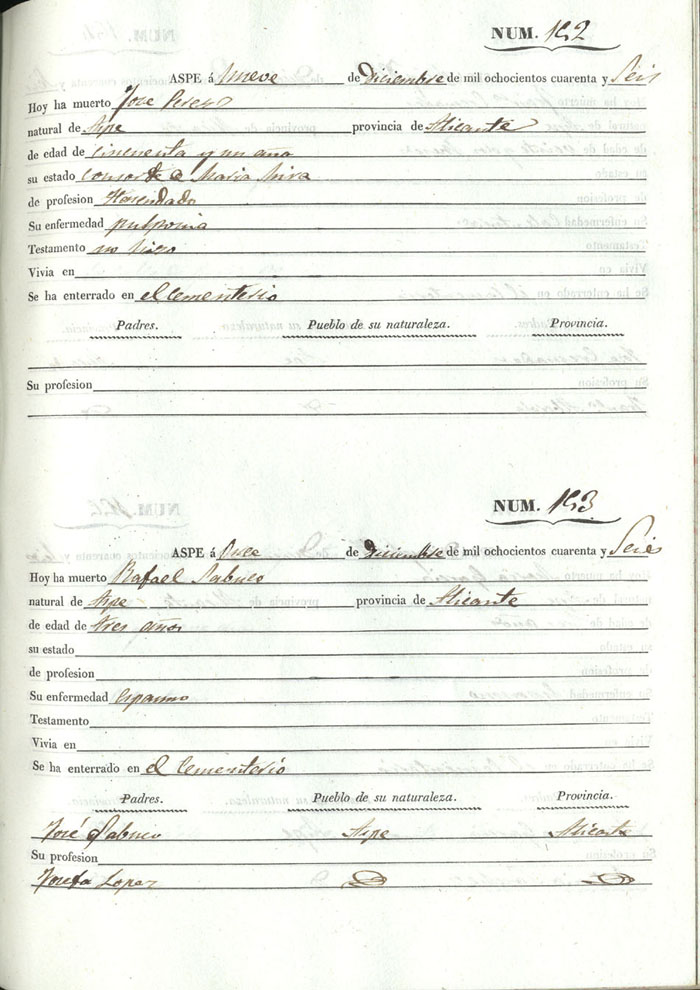 NUM. 152
ASPE á nueve de Diciembre de mil ochocientos cuarenta y Seis
Hoy ha muerto Jose Perez
natural de Aspe provincia de Alicante
de edad de cincuenta y un año
su estado consorte de Maria Mira
de profesion Hasendado
Su enfermedad pulmonia
Testamento no hizo
Vivia en
Se ha enterrado en el Cementerio
Padres. Pueblo de su naturaleza. Provincia.
Su profesion
NUM. 153
ASPE á Once de Diciembre de mil ochocientos cuarenta y Seis
Hoy ha muerto Rafael Sabuco
natural de Aspe provincia de Alicante
de edad de tres años
su estado
de profesion
Su enfermedad espasmo
Testamento
Vivia en
Se ha enterrado en el Cementerió
Padres. Pueblo de su naturaleza. Provincia.
José Sabuco Aspe Alicante
Su profesion
Josefa Lopez